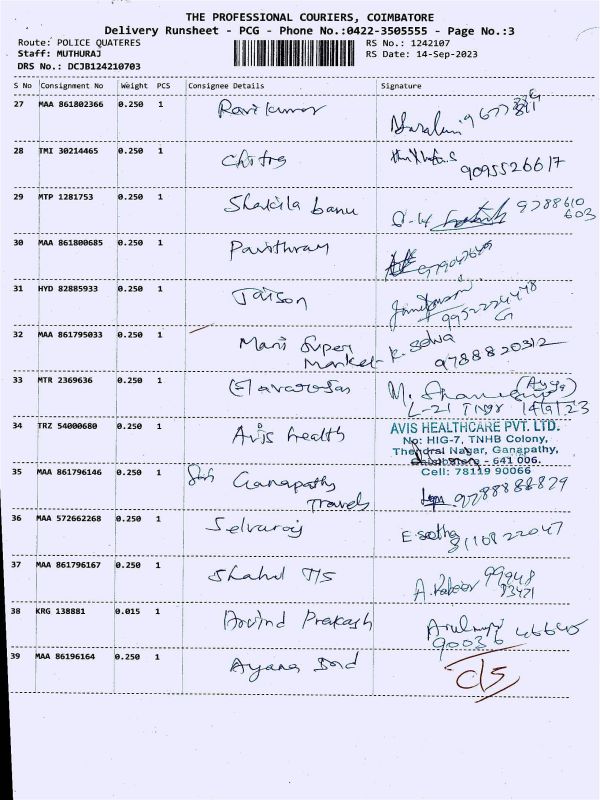 THE PROFESSIONAL COURIERS, COIMBATORE
Delivery Runsheet - PCG - Phone No.:0422-3505555 - Page No.:3
Route: POLICE QUATERES RS No.: 1242107
Staff: MUTHURAJ RS Date: 14-Sep-2023
DRS No.: DCJB124210703
S No Consignment No Weight PCS Consignee Details Signature
27 MAA 861802366 0.250 1 Ravikumar
28 TMI 30214465 0.250 1 Chitra 9095526617
29 MTP 1281753 0.250 1 Shakila banu 9788610
603
30 MAA 861800685 0.250 1 Pavithram
31 HYD 82885933 0.250 1 Jaison
9952224478
32 MAA 861795033 0.250 1 Mani Super K. Selva
Market 9788820312
33 MTR 2369636 0.250 1 M.
L-21 TNGR 14/9/23
34 TRZ 54000680 0.250 1 Avis health AVIS HEALTHCARE PVT. LTD.
No: HIG-7, TNHB Colony,
Thendral Nagar, Ganapathy,
Coimbatore - 641 006.
Cell: 78119 90066
35 MAA 861796146 0.250 1 Sri Ganapathy
Travels
36 MAA 572662268 0.250 1 Selvaraj E.
37 MAA 861796167 0.250 1 Shahul T/S A. Kabeer 99948
93421
38 KRG 138881 0.015 1 Arvind Prakash
90036 46645
39 MAA 86196164 0.250 1 Ayana